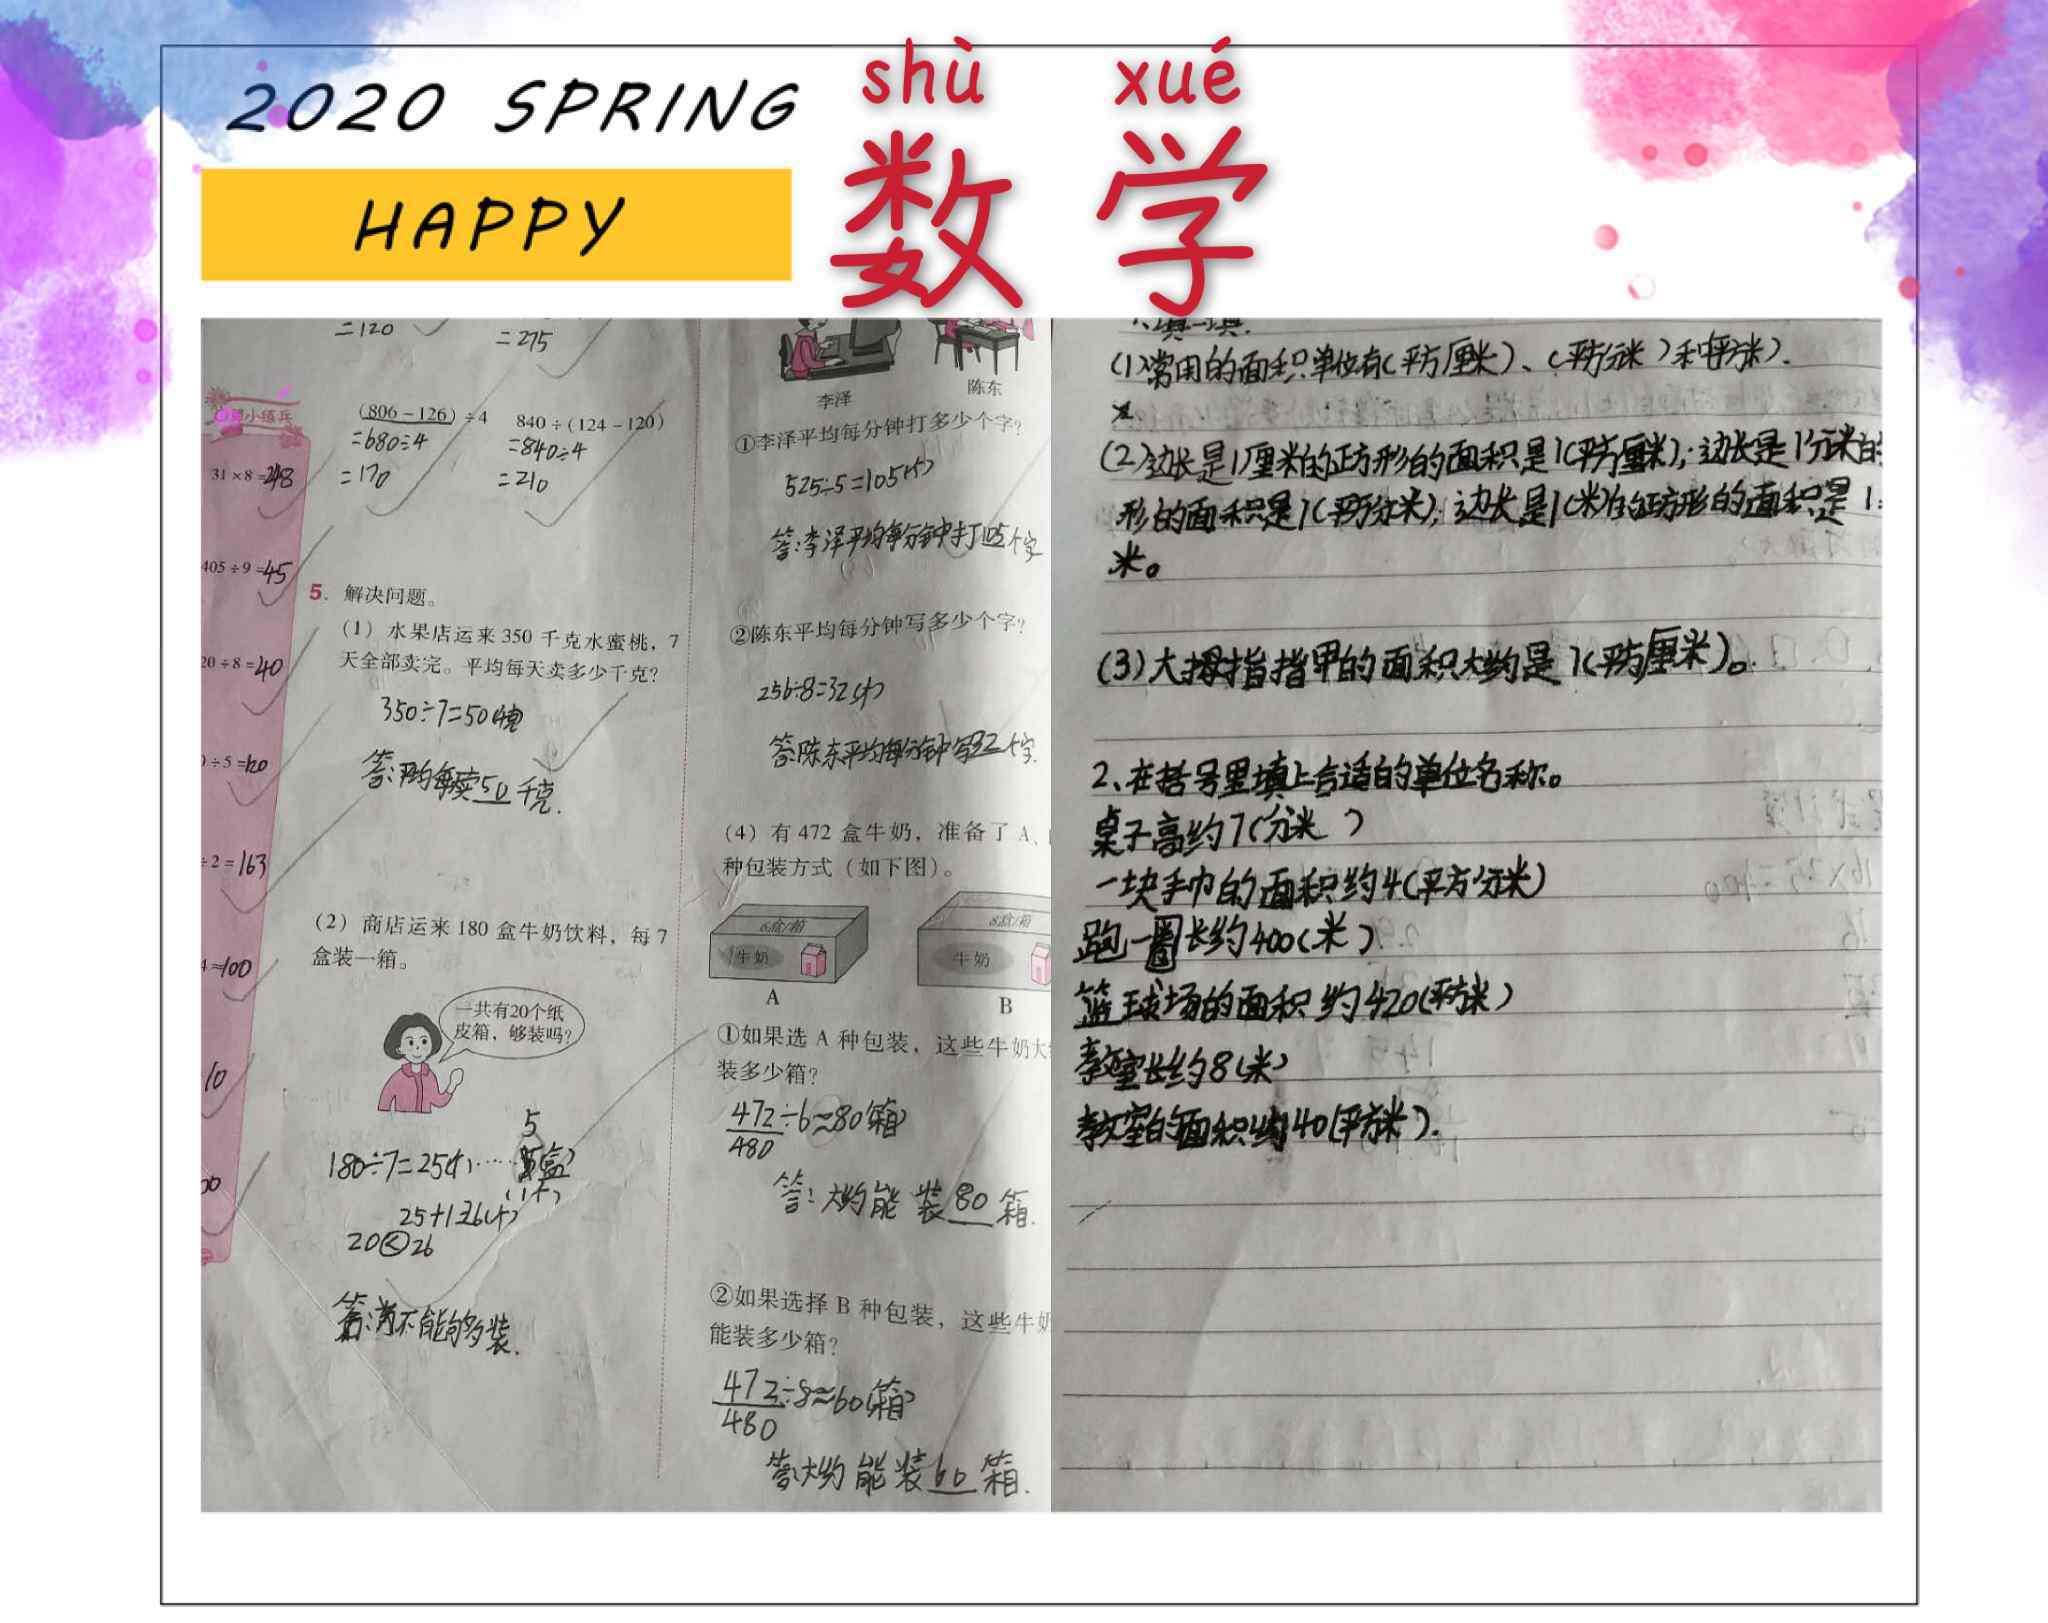 2020 SPRING
HAPPY
shù xué
数学
=120
=275
小练兵
31×8=248
405÷9=45
20÷8=40
÷5=120
÷2=163
=100
10
00
(806-126)÷4
=680÷4
=170
840÷(124-120)
=840÷4
=210
5. 解决问题。
(1) 水果店运来 350 千克水蜜桃，7
天全部卖完。平均每天卖多少千克?
350÷7=50(千克)
答:平均每卖50千克.
(2) 商店运来 180 盒牛奶饮料，每 7
盒装一箱。
一共有20个纸
皮箱，够装吗?
5
180÷7=25(个)……(盒)
(1个)
20<26
答:不能够装.
李泽
陈东
①李泽平均每分钟打多少个字?
525÷5=105(个)
答:李泽平均每分钟打105个字
②陈东平均每分钟写多少个字?
256÷8=32(个)
答:陈东平均每分钟写32个字.
(4) 有 472 盒牛奶，准备了 A、
种包装方式（如下图）。
6盒/箱
牛奶
A
8盒/箱
牛奶
B
①如果选 A 种包装，这些牛奶大
装多少箱?
472÷6≈80(箱)
480
答:大约能装80箱.
②如果选择 B 种包装，这些牛奶
能装多少箱?
472÷8≈60(箱)
480
答:大约能装60箱.
1、填一填.
(1)常用的面积单位有(平方厘米)、(平方分米)和(平方米).
(2)边长是1厘米的正方形的面积是1(平方厘米);边长是1分米的
形的面积是1(平方分米);边长是1(米)的正方形的面积是1
米。
(3)大拇指指甲的面积大约是1(平方厘米)。
2、在括号里填上合适的单位名称。
桌子高约7(分米)
一块手巾的面积约4(平方分米)
跑一圈长约400(米)
篮球场的面积约420(平方米)
教室长约8(米)
教室的面积约40(平方米).